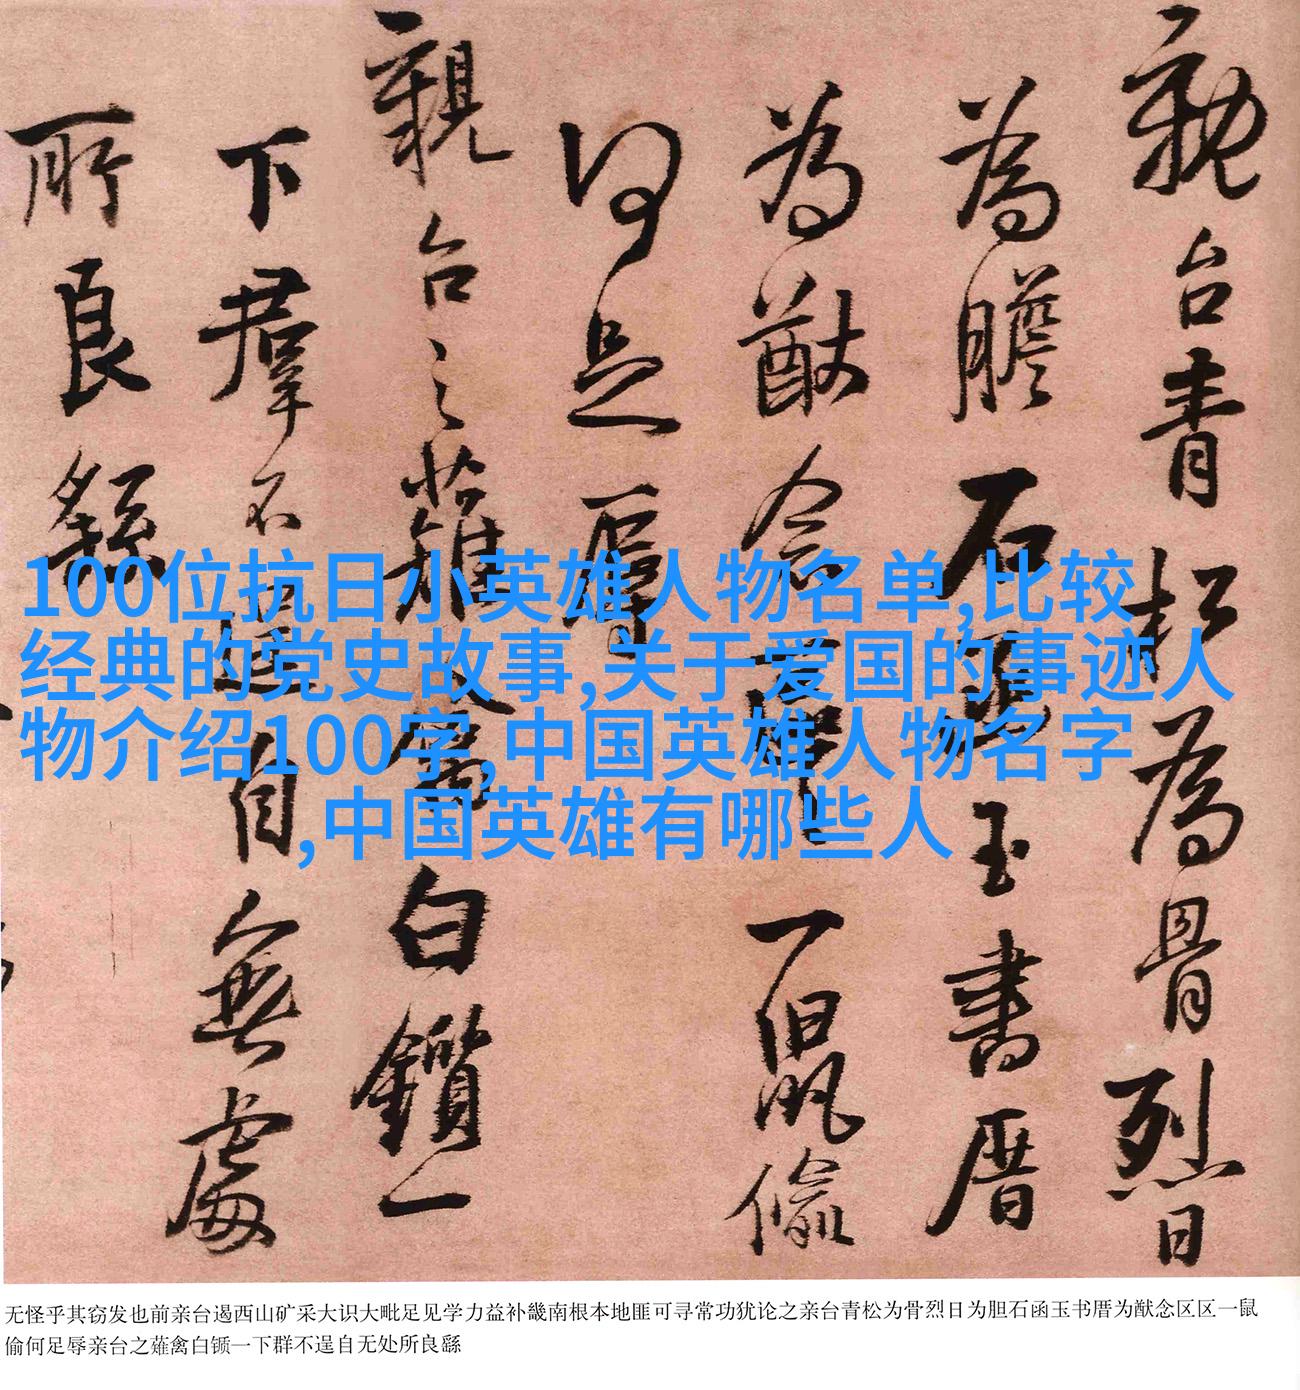 親台青松為骨烈日
為膽石
玉書厝
為猷念
一鼠偷
何足辱
親台之薙
白鑕一
下羣不逞自無處
所良繇
100位抗日小英雄人物名单,比较
经典的党史故事,关于爱国的事迹人
物介绍100字,中国英雄人物名字
,中国英雄有哪些人
无怪乎其窃发也前亲台遏西山矿采大识大毗足见学力益补畿南根本地匪可寻常功犹论之亲台青松为骨烈日为胆石函玉书厝为猷念区区一鼠
偷何足辱亲台之薙禽白锧一下群不逞自无处所良繇